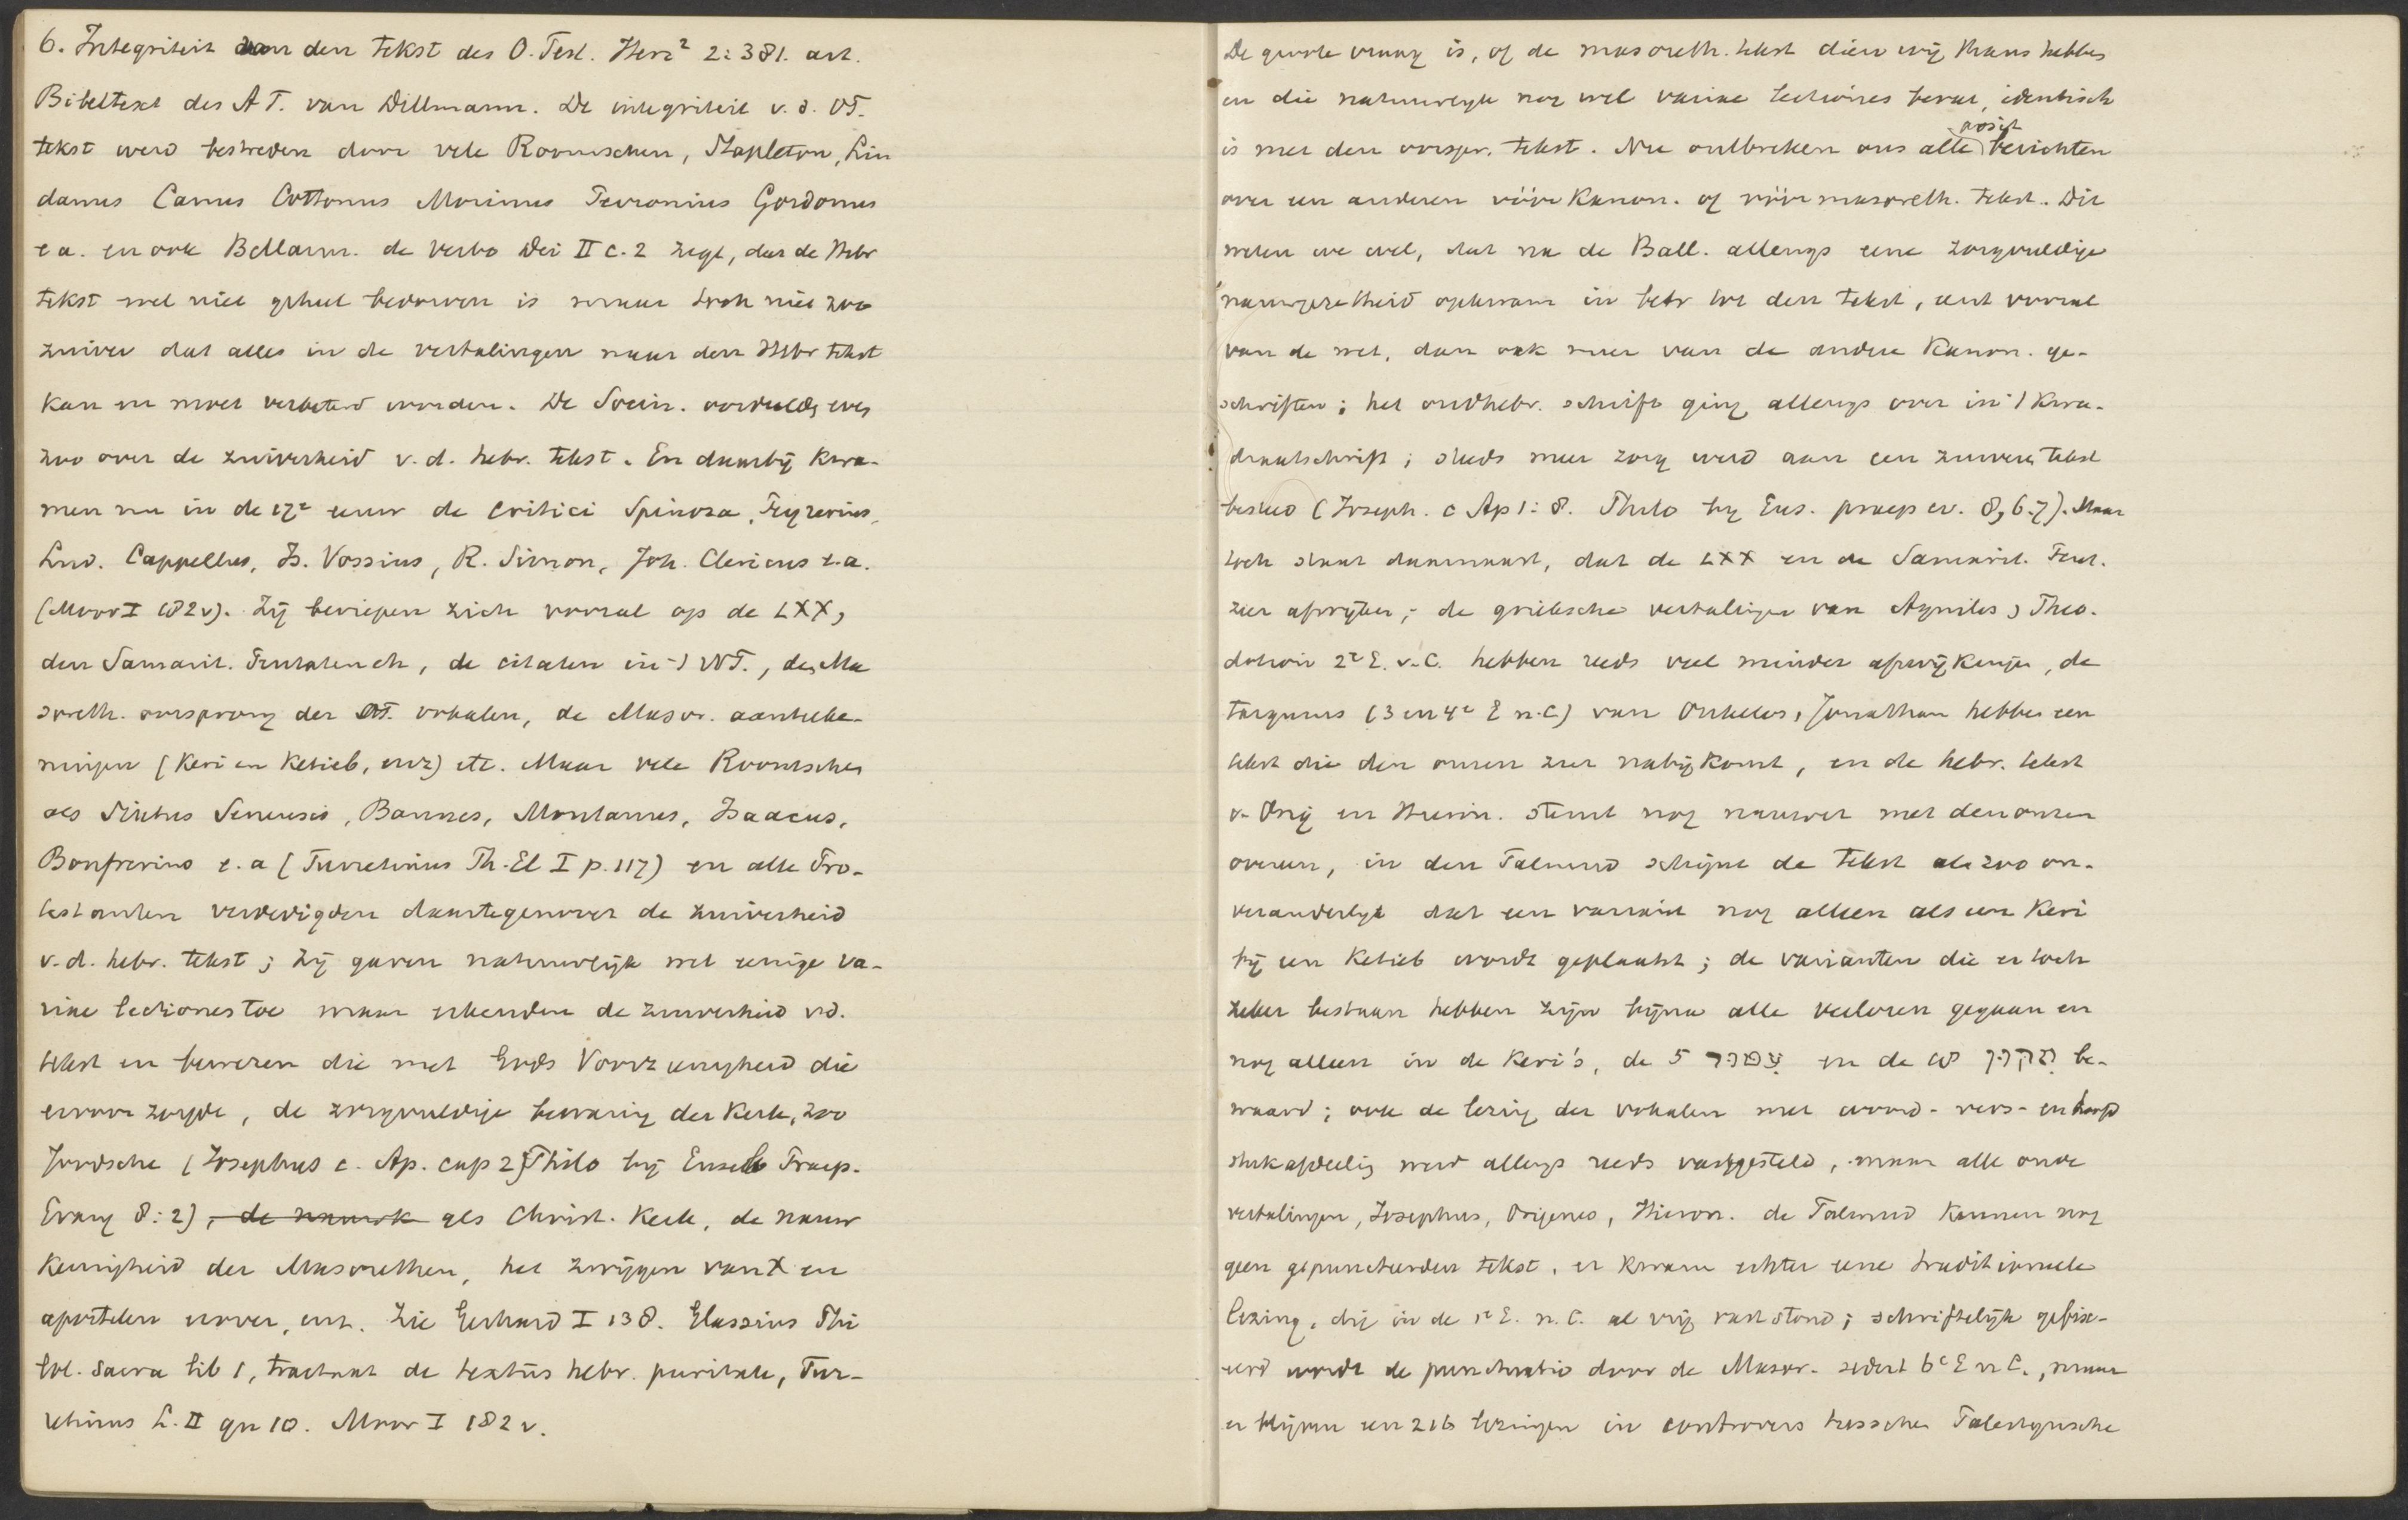 6. Integriteit van den tekst des O. Test. Herz² 2:381. art.
Bibeltext des A T. van Dillmann. De integriteit v. d. OT.
tekst werd bestreden door vele Roomschen, Stapleton, Lin
danus Canus Cottonus Morinus Perronius Gordonus
e a. en ook Bellarm. de verbo Dei II c. 2 zegt, dat de Hebr
tekst wel niet geheel bedorven is maar toch niet zoo
zuiver dat alles in de vertalingen naar den Hebr tekst
kan en moet verbeterd worden. De Socin. oordeelde even
zoo over de zuiverheid v. d. hebr. tekst. En daarbij kwa-
men nu in de 17e eeuw de critici Spinoza, Peyrerius,
Lud. Cappellus, Is. Vossius, R. Simon, Joh. Clericus e. a.
(Moor I 182v). Zij beriepen zich vooral op de LXX,
den Samarit. Pentateuch, de citaten in 't NT., de Ma
soreth. oorsprong der OT. vokalen, de Masor. aanteeke-
ningen (Keri en Ketieb, enz) etc. Maar vele Roomschen
als Sixtus Senensis, Bannes, Montanus, Isaacus,
Bonfrerius e. a (Turretinus Th. El I p. 117) en alle Pro-
testanten verdedigden daartegenover de zuiverheid
v. d. hebr. tekst; zij gaven natuurlijk wel eenige va-
riae lectiones toe maar erkenden de zuiverheid vd.
tekst en bewezen die met Gods Voorzienigheid die
ervoor zorgde, de zorgvuldige bewaring der Kerk, zoo
Joodsche (Josephus c. Ap. cap 2) Philo bij Euseb Praep.
Evang 8:2), de nauwk als Christ. Kerk, de nauw
keurigheid der Masorethen, het zwijgen van X en
apostelen erover, enz. Zie Gerhard I 138. Glassius Phi
lol. sacra lib 1, tractat de textus hebr. puritate, Tur-
retinus L. II qu 10. Moor I 182 v.
De groote vraag is, of de masoreth. tekst dien wij thans hebben
en die natuurlijk nog wel variae lectiones bevat, identisch
is met den oorspr. tekst. Nu ontbreken ons alle posit berichten
over een anderen vóór Kanon. of vóór masoreth. tekst. Dit
weten we wel, dat na de Ball. allengs eene zorgvuldige
nauwgezetheid opkwam in betr tot den tekst, eerst vooral
van de wet, dan ook meer van de andere Kanon. ge-
schriften; het oudhebr. schrift ging allengs over in 't kwa-
draatschrift; steeds meer zorg werd aan een zuiveren tekst
besteed (Joseph. c Ap 1:8. Philo by Eus. praep ev. 8, 6.7). Maar
toch staat daarnaast, dat de LXX en de Samarit. Pent.
zeer afwijken; de grieksche vertalingen van Aquilas, Theo.
dotion 2e E. v. C. hebben reeds veel minder afwijkingen, de
targums (3 en 4e E n. C) van Onkelos, Jonathan hebben een
tekst die den onzen zeer nabij komt, en de hebr. tekst
v. Orig en Hieron. stemt nog nauwer met den onzen
overeen, in den Talmud schijnt de tekst als zoo on-
veranderlijk dat een variant nog alleen als een Keri
bij een Ketieb wordt geplaatst; de varianten die er toch
zeker bestaan hebben zijn bijna alle verloren gegaan en
nog alleen in de Keri's, de 5 en de 18 be-
waard; ook de lezing der vokalen met woord- vers- en hoofd
stukafdeelig werd allengs reeds vastgesteld, maar alle oude
vertalingen, Josephus, Origenes, Hieron. de Talmud kennen nog
geen gepunctueerden tekst, er kwam echter eene traditioneele
lezing, die in de 1e E. n. C. al vrij vast stond; schriftelijk gefixe-
eerd wordt de punctuatio door de Masor. sedert 6e E n C., maar
er blijven een 216 lezingen in controvers tusschen Palestijnsche